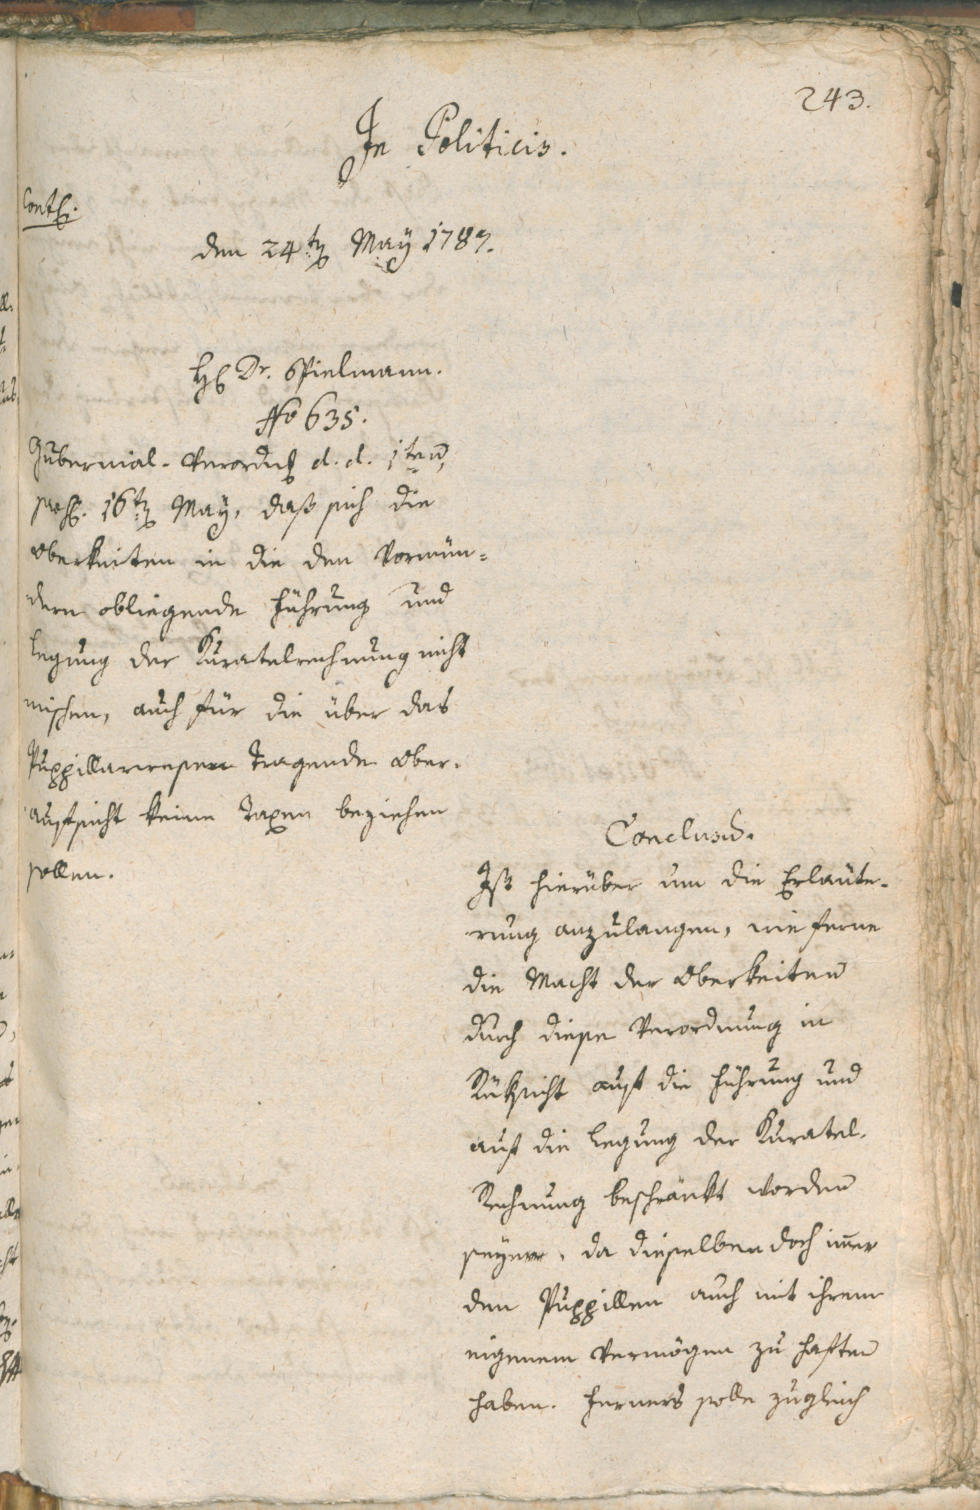 243.
In Politicis.
Contn.
den 24tn May 1787.
H. Dr. Spielmann.
No 635.
Gubernial-Verordng d. d. 1ten,
pros. 16tn May, daß sich die
Oberkeiten in die den Vormün-
dern obliegende Führung und
Legung der Kuratelrechnung nicht
mischen, auch für die über das
Puppillarwesen tragende Ober-
aufsicht keine Taxen beziehen
sollen.
Conclusũ.
Ist hierüber um die Erläute-
rung anzulangen, wie ferne
die Macht der Oberkeiten
durch diese Verordnung in
Rüksicht auf die Führung und
auf die Legung der Kuratel-
Rechnung beschränkt worden
seyen, da dieselben doch im̃er
den Puppillen auch mit ihrem
eigenem Vermögen zu haften
haben. Ferners solle zugleich